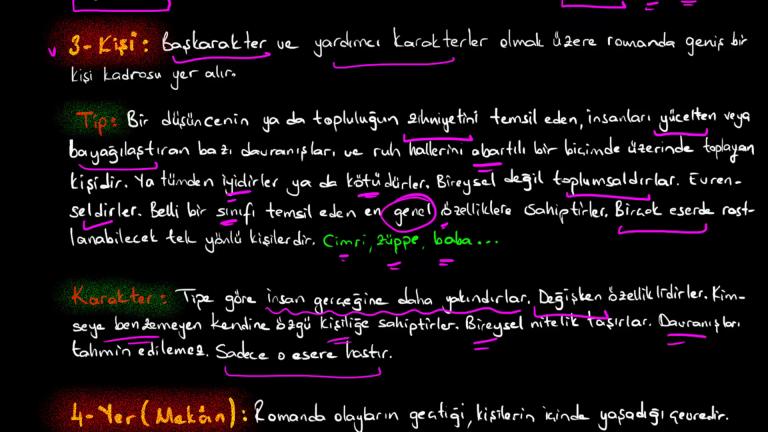 3- Kişi: Başkarakter ve yardımcı karakterler olmak üzere romanda geniş bir
kişi kadrosu yer alır.
Tip: Bir düşüncenin ya da topluluğun zihniyetini temsil eden, insanları yücelten veya
bayağılaştıran bazı davranışları ve ruh hallerini abartılı bir biçimde üzerinde toplayan
kişidir. Ya tümden iyidirler ya da kötüdürler. Bireysel değil toplumsaldırlar. Evren-
seldirler. Belli bir sınıfı temsil eden en genel özelliklere sahiptirler. Birçok eserde rast-
lanabilecek tek yönlü kişilerdir. Cimri, züppe, baba...
Karakter: Tipe göre insan gerçeğine daha yakındırlar. Değişken özelliklidirler. Kim-
seye benzemeyen kendine özgü kişiliğe sahiptirler. Bireysel nitelik taşırlar. Davranışları
tahmin edilemez. Sadece o esere hastır.
4- Yer (Mekân): Romanda olayların geçtiği, kişilerin içinde yaşadığı çevredir.